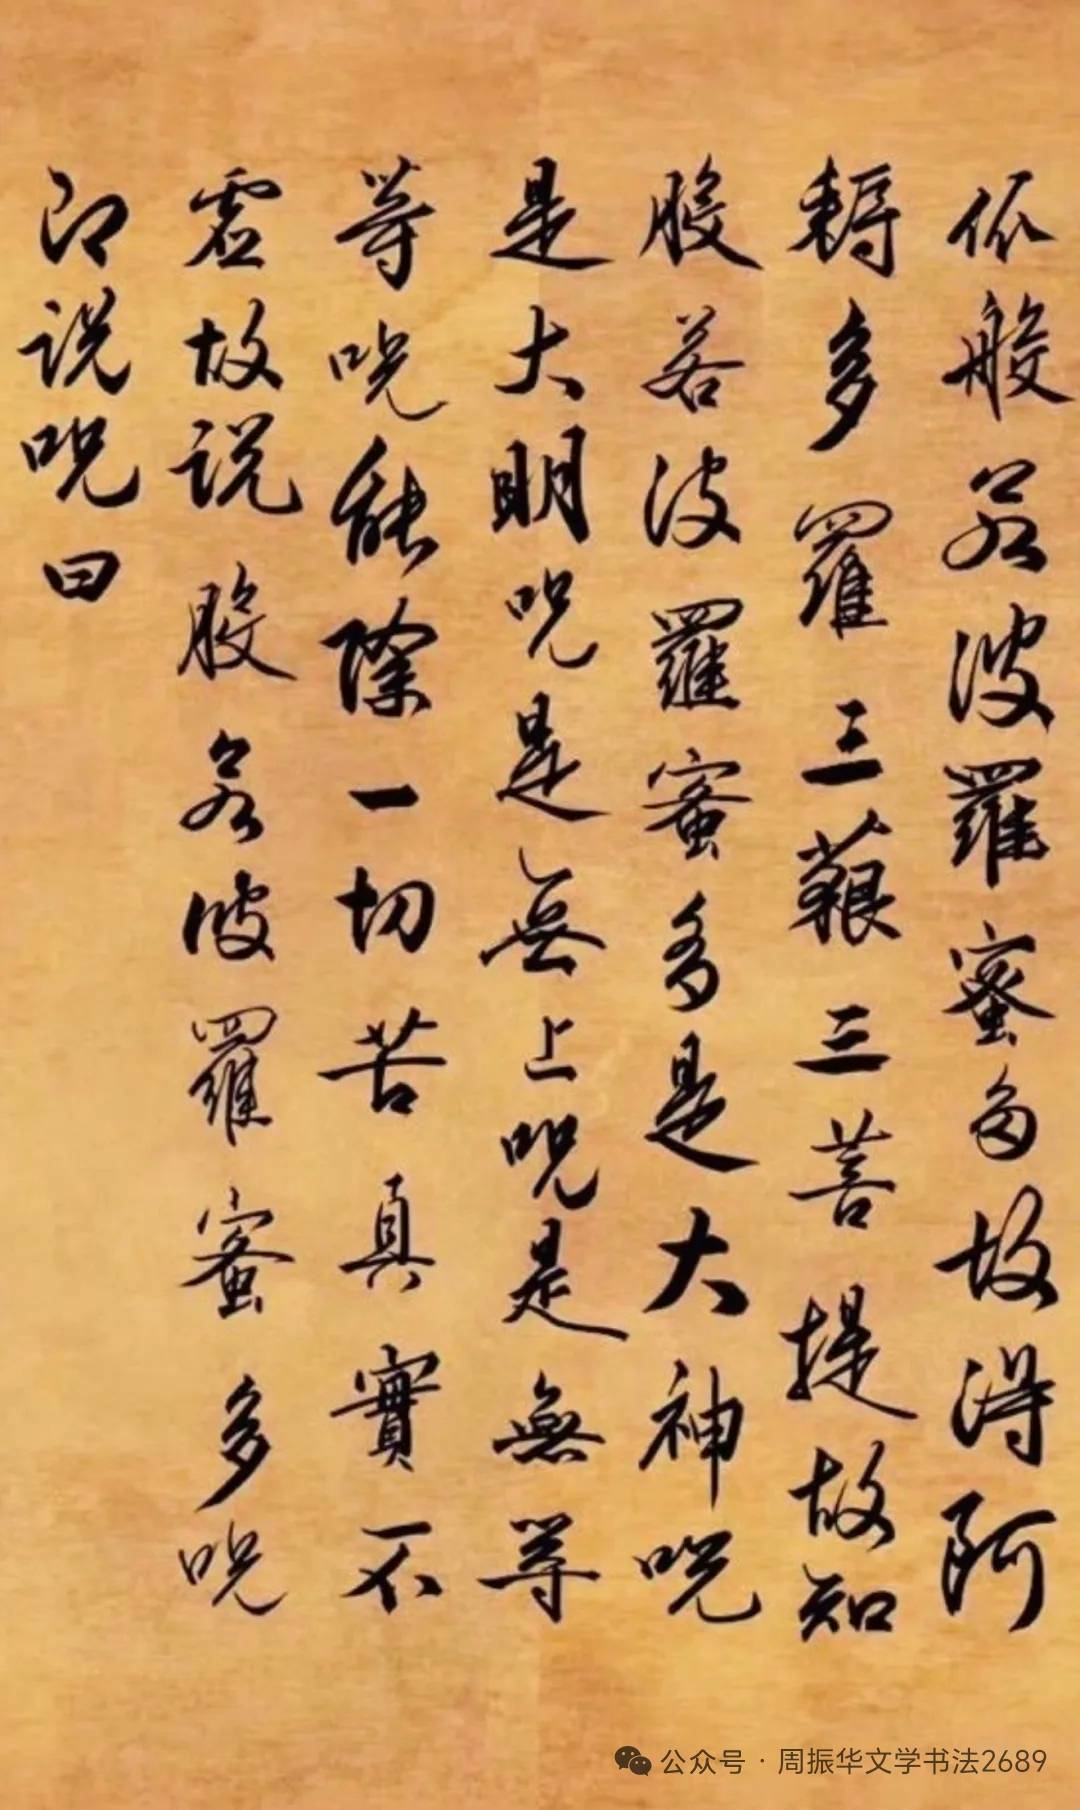 依般若波羅蜜多故得阿
耨多羅三藐三菩提故知
般若波羅蜜多是大神呪
是大明呪是無上呪是無等
等呪能除一切苦真實不
虛故説般若波羅蜜多呪
即説呪曰
公众号·周振华文学书法2689